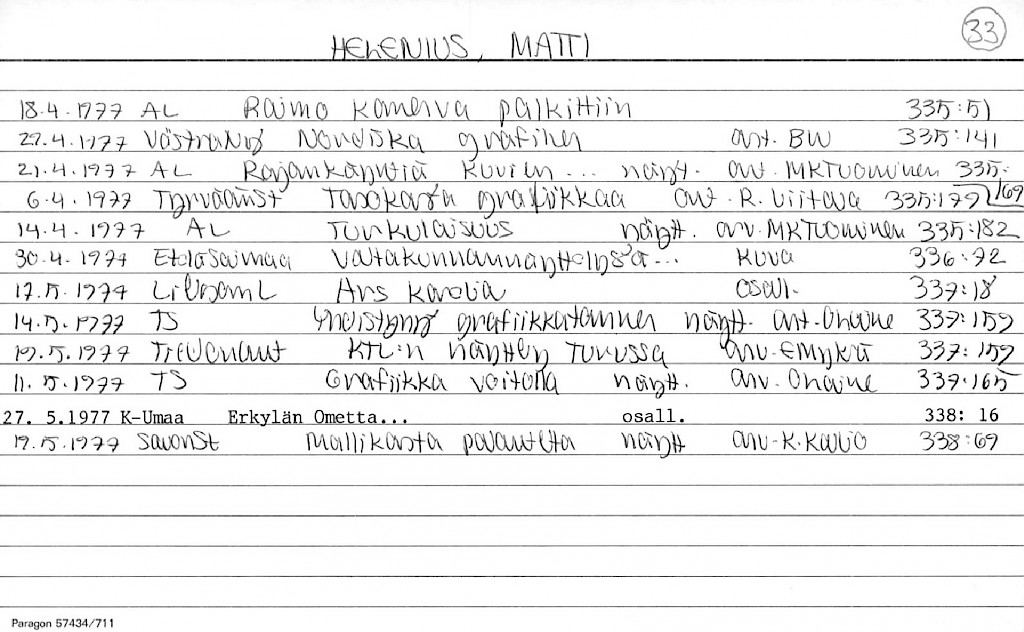 33
HELENIUS, MATTI
18.4.1977 AL Raimo Kanerva palkittiin 335:51
27.4.1977 VästraNy Nordiska grafiken arv. BW 335:141
21.4.1977 AL Rajankäyntiä kuvien... näytt. arv. MKTuominen 335:169
6.4.1977 Tyrväänst Tasokasta grafiikkaa arv. R. Viitala 335:179
14.4.1977 AL Turkulaisuus näytt. arv. MKTuominen 335:182
30.4.1977 EteläSaimaa Valtakunnannäyttelyssä... kuva 336:72
17.5.1977 Ars Karelia osall. 337:18
14.5.1977 TS grafiikkatammen näytt. arv. 337:159
19.5.1977 KTL:n näyttely Turussa arv. 337:159
11.5.1977 TS Grafiikka voitolla näytt. arv. 337:165
27. 5.1977 K-Umaa Erkylän Ometta... osall. 338: 16
19.5.1977 SavonSt Mallikasta palautetta näytt arv. K. Kallio 338:69
Paragon 57434/711